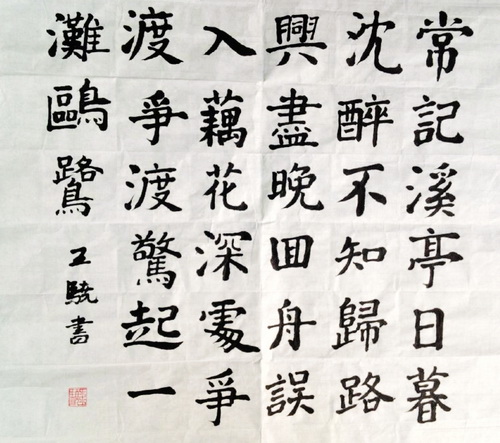 常記溪亭日暮
沈醉不知歸路
興盡晚囬舟誤
入藕花深處爭
渡爭渡驚起一
灘鷗鷺 王驍書